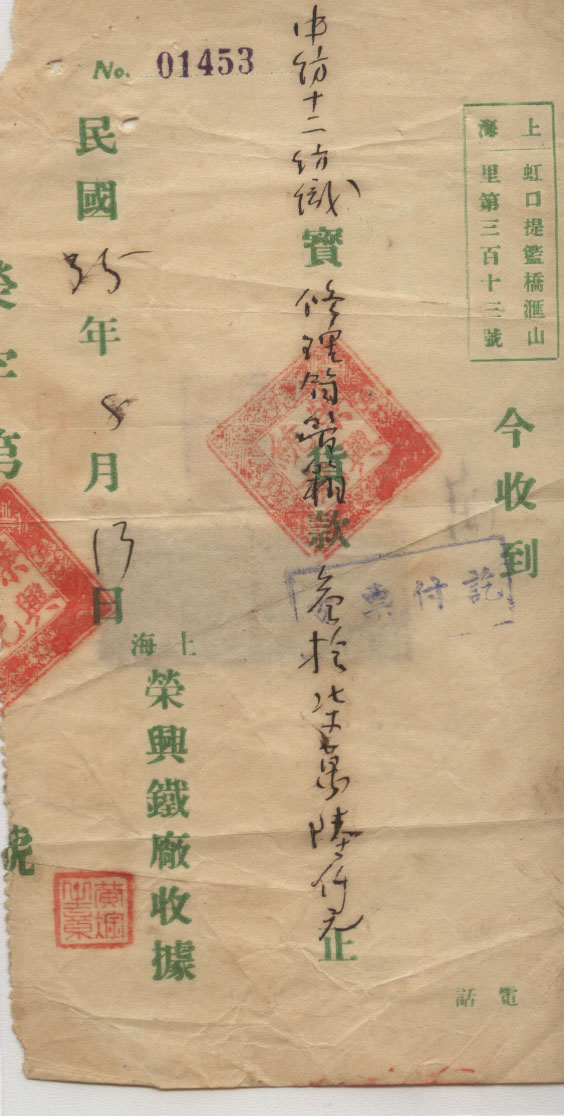 No. 01453
上海
虹口提籃橋滙山
里第三百十三號
今收到
中紡十二紡織
寶
修理筒管箱
貨款
叁拾柒萬陸仟元
正
票付訖
民國35年8月13日
上海
榮興鐵廠收據
榮字第
號
電話
榮興